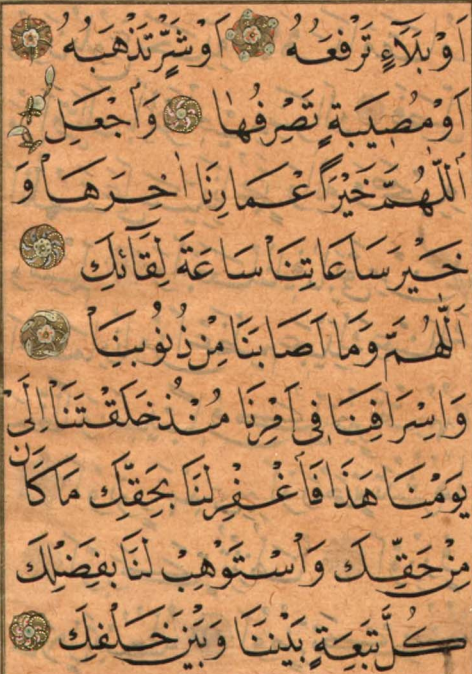 اَوْ بَلَآءٍ تَرْفَعُهُ اَوْ شَرٍّ تَذْهَبُ بِهِ
اَوْ مُصِيَبةٍ تَصْرِفُهَا وَاجْعَلِ
اَللّٰهُمَّ خَيْرَ اَعْمَارِنَا اٰخِرَهَا وَ
خَيْرَ سَاعَاتِنَا سَاعَةَ لِقَائِكَ
اَللّٰهُمَّ وَمَا اَصَابَنَا مِنْ ذُنُوبِنَا
وَاِسْرَافِنَا فِى اَمْرِنَا مُنْذُ خَلَقْتَنَا اِلَى
يَوْمِنَا هَذَا فَاغْفِرْ لَنَا بِحَقِّكَ مَا كَانَ
مِنْ حَقِّكَ وَاسْتَوْهِبْ لَنَا بِفَضْلِكَ
كُلَّ تَبِعَةٍ بَيْنَنَا وَبَيْنَ خَلْقِكَ